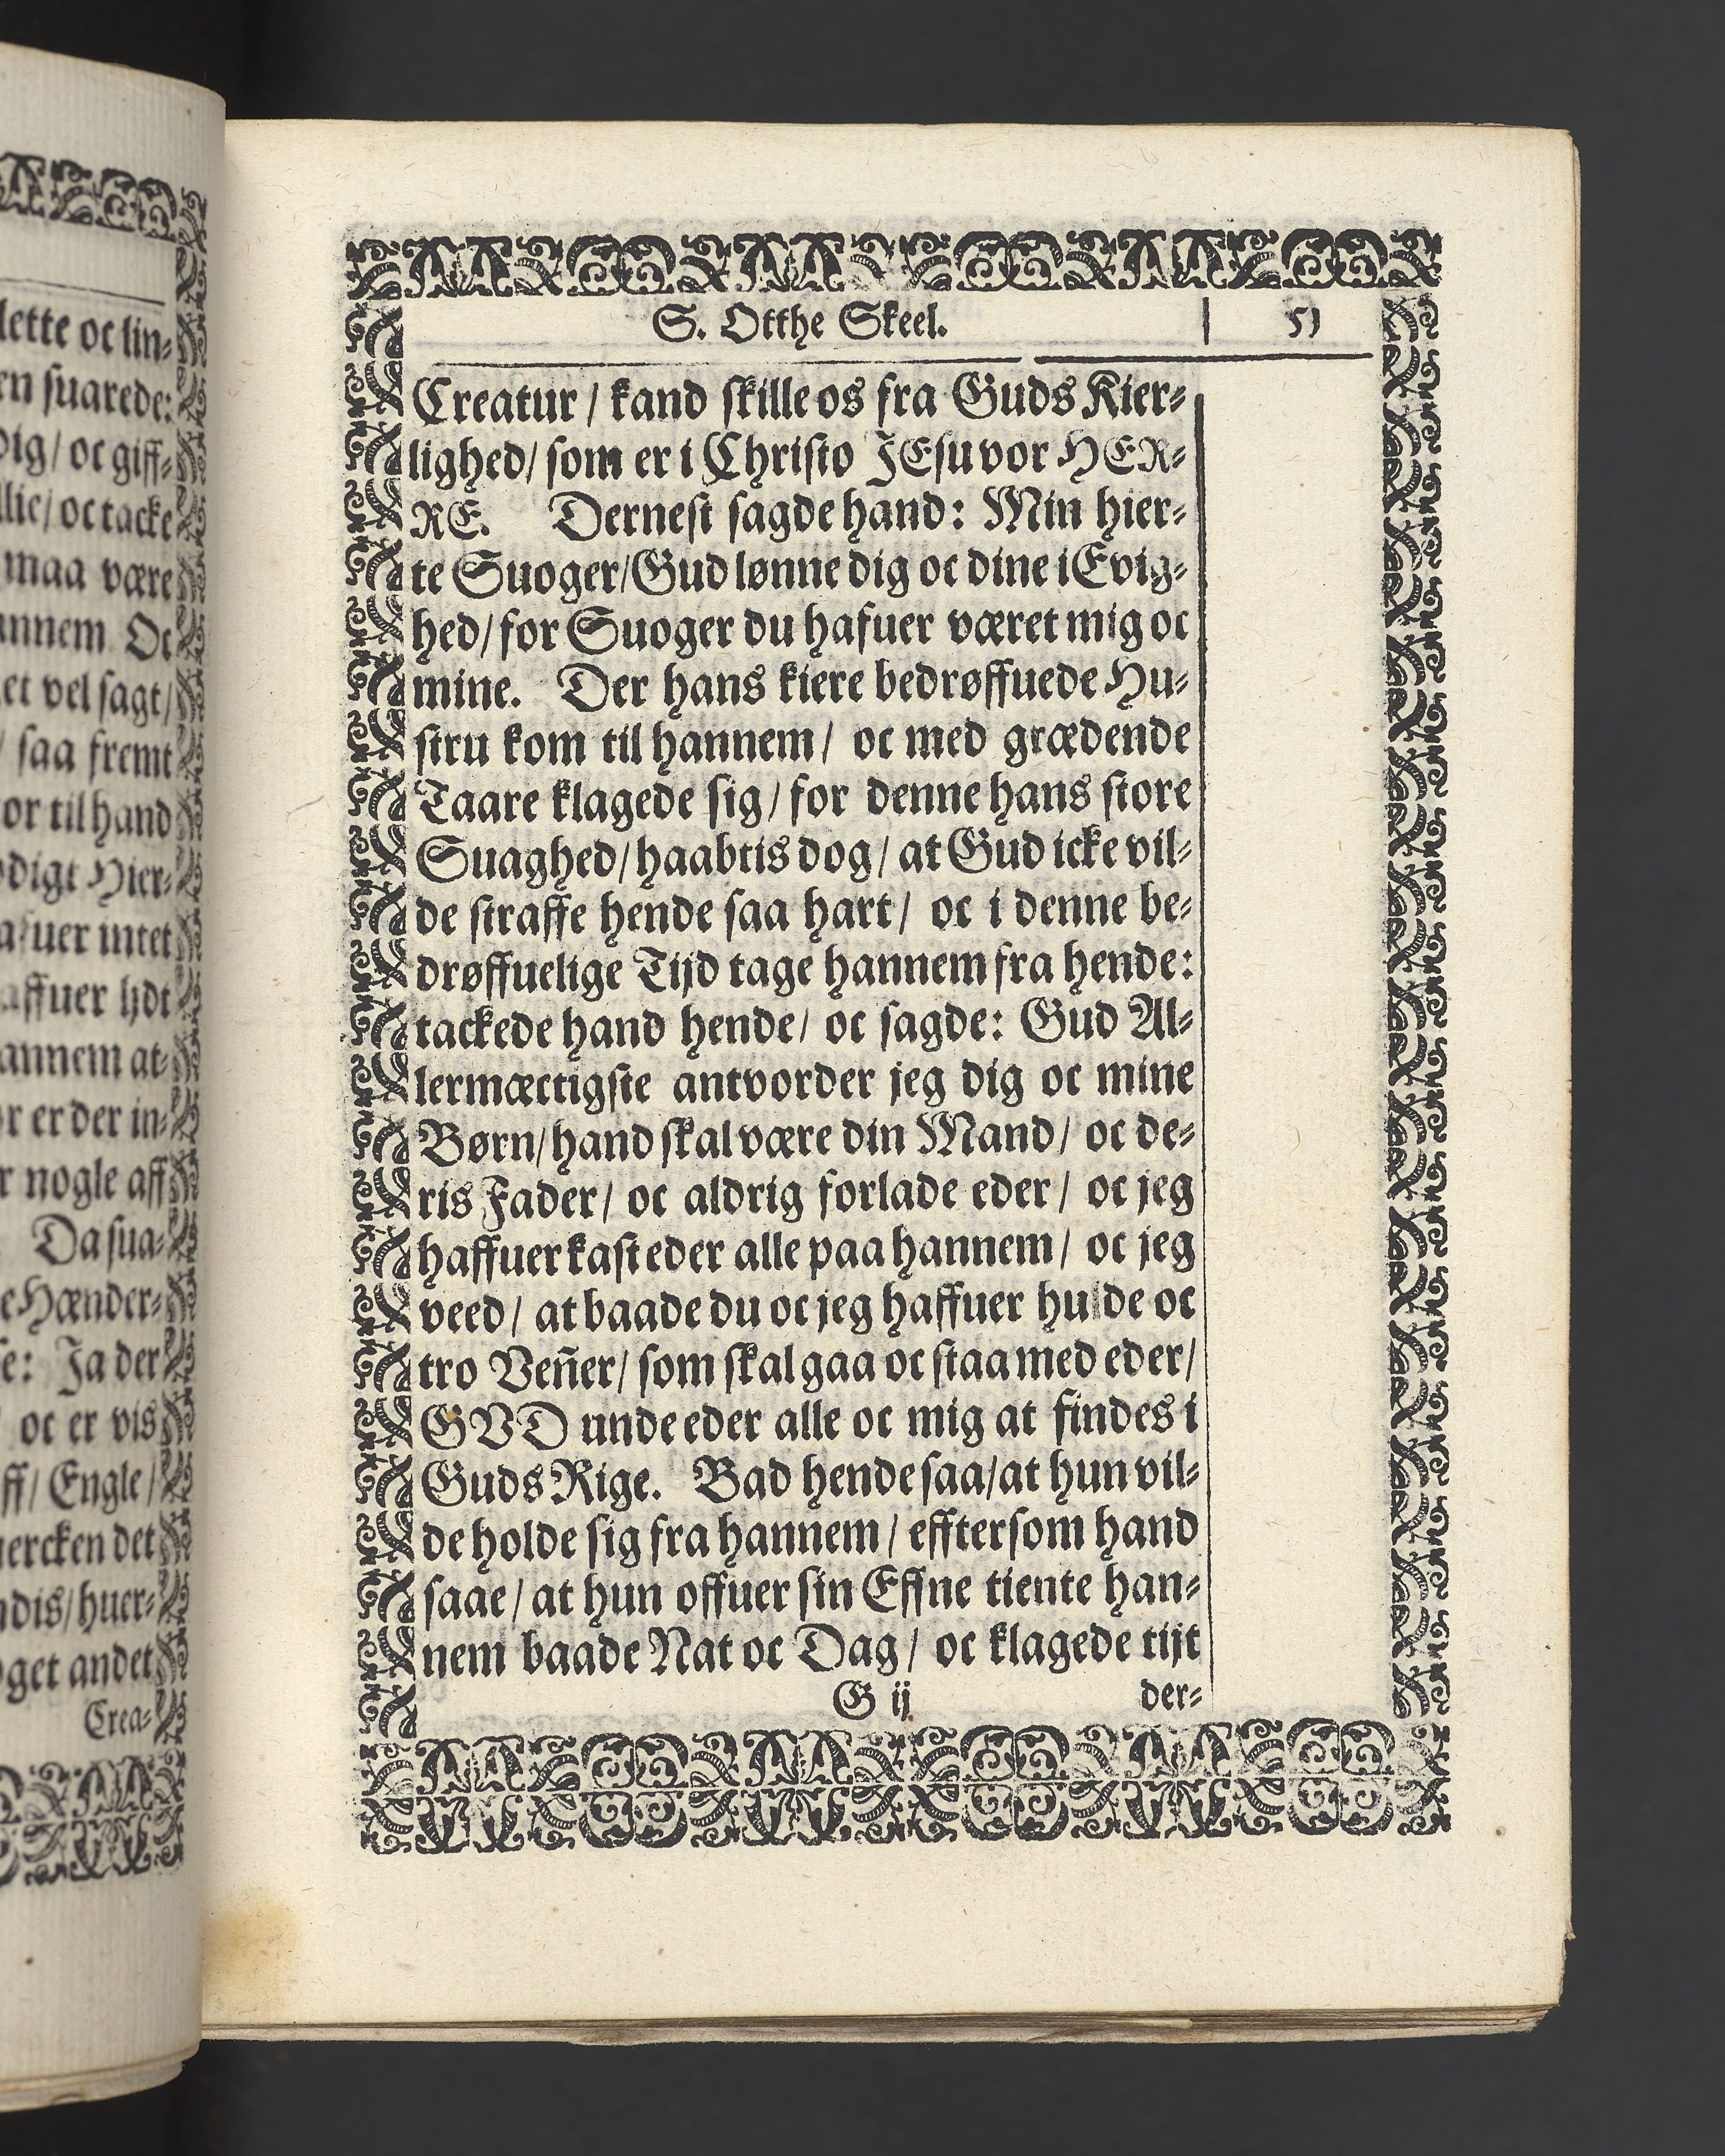 lette oc lin-
en suarede:
dig/ oc giff-
llie/ oc tacke
maa være
annem Oc
et vel sagt/
/ saa fremt
or til hand
digt Hier-
afuer intet
affuer lidt
annem at-
r er der in-
r nogle aff
Da sua-
e Hænder-
se: Ja der
oc er vis
ff/ Engle/
uercken det
ndis/ huer-
get andet
Crea-
S. Otthe Skeel. 51
Creatur / kand skille os fra Guds Kier-
lighed/ som er i Christo JEsu vor HER-
RE. Dernest sagde hand: Min hier-
te Suoger/ Gud lønne dig oc dine i Evig-
hed/ for Suoger du hafuer været mig oc
mine. Der hans kiere bedrøffuede Hu-
stru kom til hannem/ oc med grædende
Taare klagede sig/ for denne hans store
Suaghed/ haabtis dog/ at Gud icke vil-
de straffe hende saa hart/ oc i denne be-
drøffuelige Tijd tage hannem fra hende:
tackede hand hende/ oc sagde: Gud Al-
lermæctigste antvorder jeg dig oc mine
Børn/ hand skal være din Mand/ oc de-
ris Fader/ oc aldrig forlade eder/ oc jeg
haffuer kast eder alle paa hannem/ oc jeg
veed/ at baade du oc jeg haffuer hulde oc
tro Veñer/ som skal gaa oc staa med eder/
GVD unde eder alle oc mig at findes i
Guds Rige. Bad hende saa/ at hun vil-
de holde sig fra hannem/ efftersom hand
saae/ at hun offuer sin Effne tiente han-
nem baade Nat oc Dag/ oc klagede tijt
G ij der-